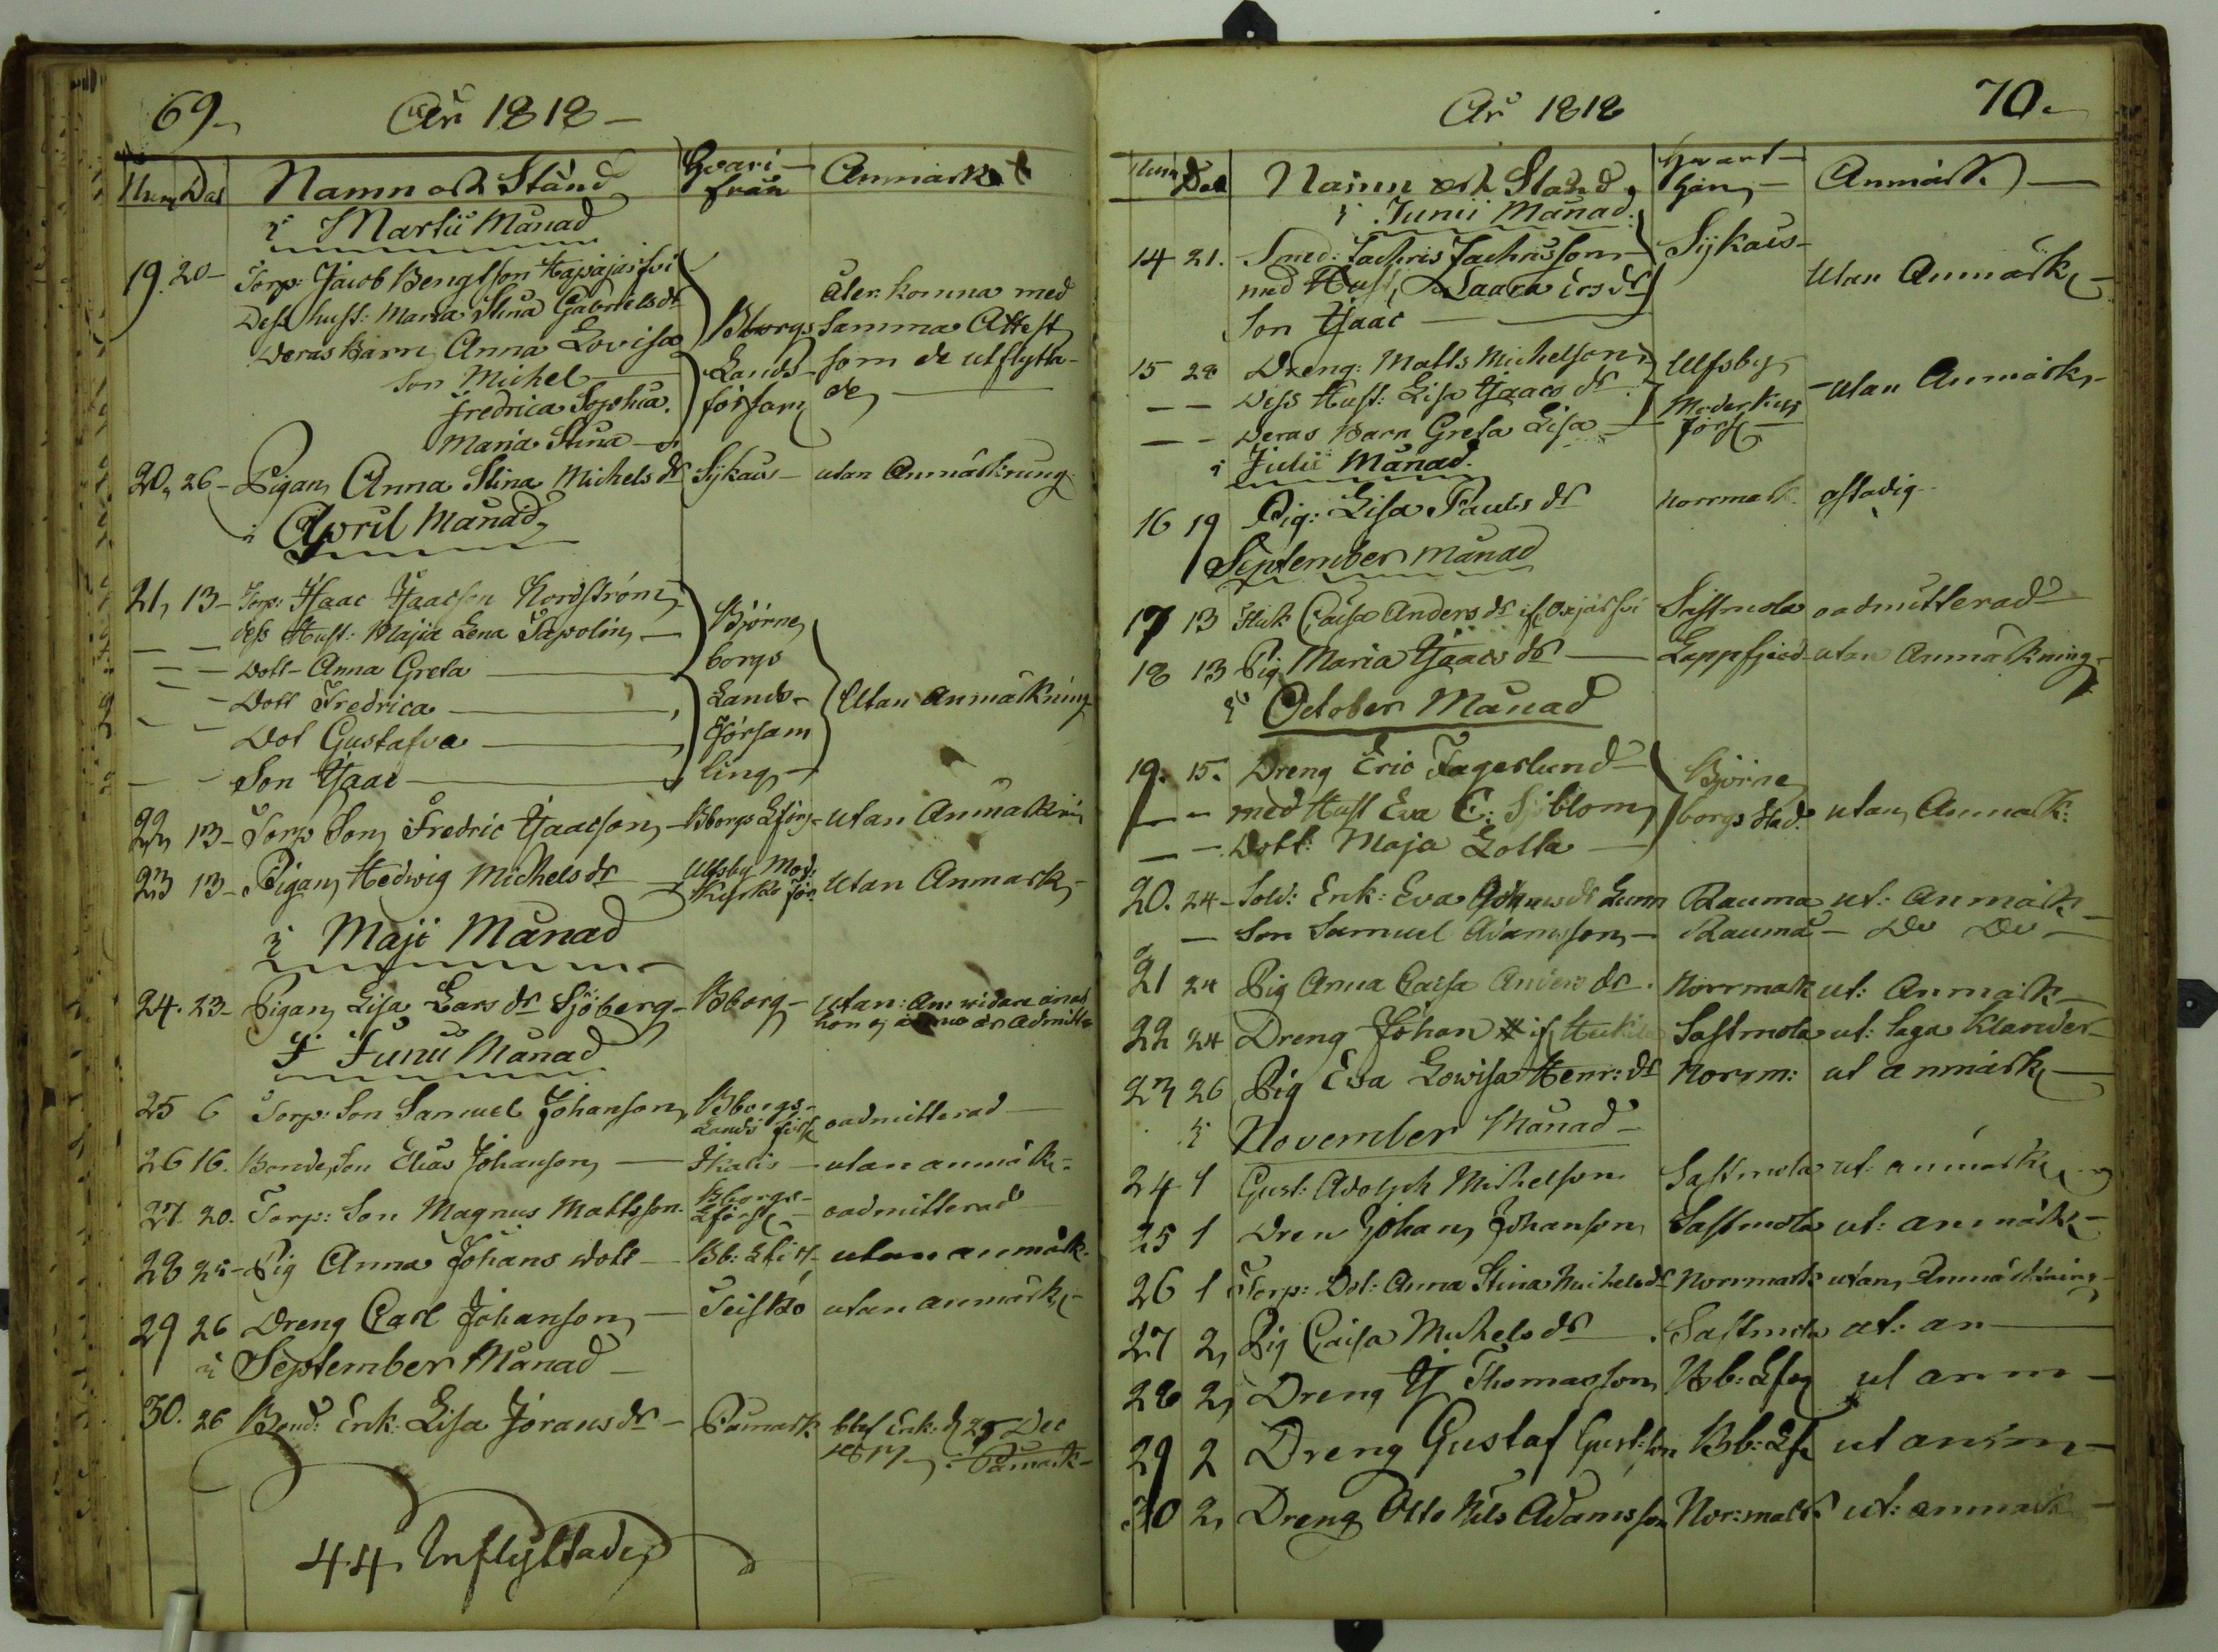 69
År 1818
Num Dat Namn och Stånd Hvari-från Anmärk
i Martii Månad
19. 20 Torp: Jacob Bengtson
Dess hust: Maria Stina Gabrielsdr
Deras Barn Anna Lovisa
Son Michel
Fredrica Sophia
Maria Stina
Bborgs
Lands
försam
åter komna med
samma Attest
som de utflytta-
de
20, 26 Pigan Anna Stina Michelsdr Sijkais utan Anmärkning
i April Månad
21, 13 Torp: Isaac Isaacson Nordström
dess Hust: Majia Lena Tapolin
Dott Anna Greta
Dott Fredrica
Dot Gustafva
Son Isaac
Björne
borgs
Lands-
försam
ling
Utan Anmärkning
22, 13 Torp Son Fredric Isaacson Bborgs Lförs utan Anmärkni
23 13 Pigan Hedwig Michelsdr Ulfsby Mod: Kyrko för Utan Anmark
i Maji Månad
24. 23 Pigan Lisa Larsdr Sjöberg Bborg utan: Anm
hon ej admitt
I Junii Månad
25 6 Torp: Son Samuel Johanson Bborgs- Lands förs oadmitterad
26 16. Bonde Son Elias Johanson Ikalis utan anmärk
27. 20. Torp: Son Magnus Mattsson Bborgs- Lförs oadmitterad
28 25 Pig Anna Johans dott Bb: Lför utan anmärk
29 26 Dreng Carl Johanson Teisko utan anmärk
i September Månad
30. 26 Bond: Enk: Lisa Jöransdr Påmark blef Enk: d 25 Dec
1817 Påmark
44 Inflyttade
År 1818
70.
Num Dat Namn och Stånd Hvart-hän Anmärk
i Junii Månad
14 21. Smed: Sachris Sachrisson Sijkais
med Hust, Laara Ersdr Utan Anmärk
Son Isaac
15 28 Dreng: Matts Michelson Ulfsby
Dess Hust: Lisa Isaacsdr Moderkyr utan Anmärk
Deras Barn Greta Lisa förs
i Julii Månad
16 19 Pig: Lisa Paulsdr Norrmark ostadig
September månad
17 13 Caisa Andersdr if Sastmola oadmitterad
18 13 Pig Maria Isaacsdr Lappfjerd utan Anmärkning
i October Månad
19. 15. Dreng Eric Fagerlund Björne
med Hust Eva C: Sjöblom borgs Stad. utan Anmärk:
Dott: Maja Lotta
20. 24 Sold: Enk: Eva Lunn Rauma ut: Anmärk
Son Samuel Adamsson Rauma Do Do
21 24 Pig Anna Caisa Andersdr Norrmark ut: Anmärk
22 24 Dreng Johan if Sastmola ut: laga Klander
23 26 Pig Eva Lowisa Henr:dr Norrm: ut anmärk
i November Månad
24 1 Gust: Adolph Michelson Sastmola ut: anmärk
25 1 Dren Johan Johanson Sastmola ut: anmärk
26 1 Torp: Dot: Anna Stina Michelsdr Norrmark utan Anmärkning
27 2, Pig Caisa Michelsdr Sastmola ut: an
28 2, Dreng Is Thomasson Bb: Lfog ut anm
29 2 Dreng Gustaf Gust:son Bb: Lfs ut anm
30 2, Dreng Otto Nils Adamsson Nor:mark ut: anmärk